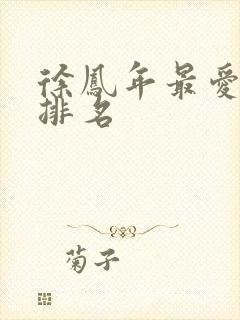 徐鳳年最愛
排名
菊子